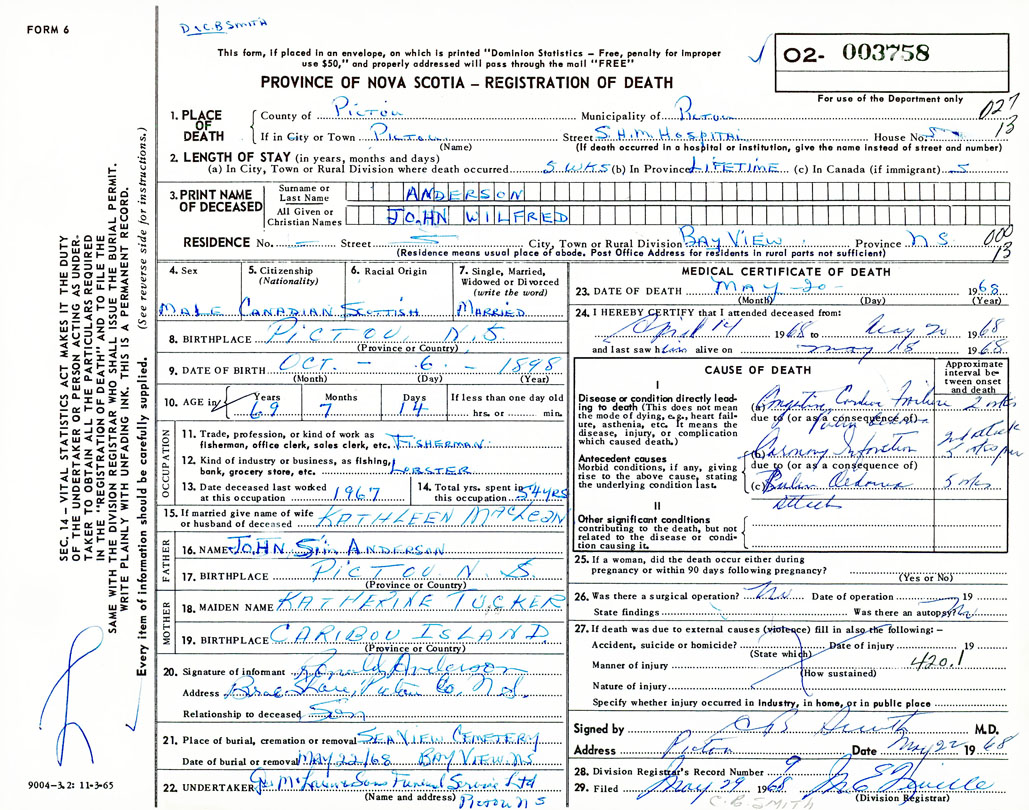 FORM 6
Dr C.B SMITH
This form, if placed in an envelope, on which is printed "Dominion Statistics – Free, penalty for improper
use $50," and properly addressed will pass through the mail "FREE"
PROVINCE OF NOVA SCOTIA – REGISTRATION OF DEATH
02- 003758
For use of the Department only
027
13
1. PLACE OF DEATH
County of PICTOU Municipality of PICTOU
If in City or Town PICTOU Street S.H.M. HOSPITAL House No.
(Name) (If death occurred in a hospital or institution, give the name instead of street and number)
2. LENGTH OF STAY (in years, months and days)
(a) In City, Town or Rural Division where death occurred 5 WKS (b) In Province LIFETIME (c) In Canada (if immigrant)
3. PRINT NAME OF DECEASED
Surname or Last Name ANDERSON
All Given or Christian Names JOHN WILFRED
RESIDENCE No. Street City, Town or Rural Division BAY VIEW Province NS
000
13
(Residence means usual place of abode. Post Office Address for residents in rural parts not sufficient)
4. Sex
MALE
5. Citizenship
(Nationality)
CANADIAN
6. Racial Origin
SCOTTISH
7. Single, Married,
Widowed or Divorced
(write the word)
MARRIED
8. BIRTHPLACE PICTOU N.S
(Province or Country)
9. DATE OF BIRTH OCT - 6 - 1898
(Month) (Day) (Year)
10. AGE in Years Months Days If less than one day old
69 7 14 hrs. or min.
OCCUPATION
11. Trade, profession, or kind of work as
fisherman, office clerk, sales clerk, etc. FISHERMAN
12. Kind of industry or business, as fishing,
bank, grocery store, etc. LOBSTER
13. Date deceased last worked
at this occupation 1967
14. Total yrs. spent in
this occupation 54 YRS
15. If married give name of wife
or husband of deceased KATHLEEN MACLEAN
FATHER
16. NAME JOHN Sim ANDERSON
17. BIRTHPLACE PICTOU N.S.
(Province or Country)
MOTHER
18. MAIDEN NAME KATHERINE TUCKER
19. BIRTHPLACE CARIBOU ISLAND
(Province or Country)
20. Signature of informant Anderson
Address Pictou Co, N.S.
Relationship to deceased Son
21. Place of burial, cremation or removal SEAVIEW CEMETERY
Date of burial or removal MAY 22/68 BAY VIEW. NS
22. UNDERTAKER Sons Funeral Service Ltd
(Name and address) Pictou N S
MEDICAL CERTIFICATE OF DEATH
23. DATE OF DEATH MAY - 20 - 1968
(Month) (Day) (Year)
24. I HEREBY CERTIFY that I attended deceased from:
April 14 1968 to May 20 1968
and last saw him alive on May 18 1968
CAUSE OF DEATH
Approximate
interval be-
tween onset
and death
I
Disease or condition directly lead-
ing to death (This does not mean
the mode of dying, e.g., heart fail-
ure, asthenia, etc. It means the
disease, injury, or complication
which caused death.)
(a) Congestive Cardiac Failure
due to (or as a consequence of)
Antecedent causes
Morbid conditions, if any, giving
rise to the above cause, stating
the underlying condition last.
(b) Coronary Infarction
due to (or as a consequence of)
(c)
II
Other significant conditions
contributing to the death, but not
related to the disease or condi-
tion causing it.
25. If a woman, did the death occur either during
pregnancy or within 90 days following pregnancy?
(Yes or No)
26. Was there a surgical operation? No Date of operation 19
State findings Was there an autopsy? No
27. If death was due to external causes (violence) fill in also the following: –
Accident, suicide or homicide? Date of injury 19
(State which)
Manner of injury 420.1
(How sustained)
Nature of injury
Specify whether injury occurred in Industry, in home, or in public place
Signed by C B Smith M.D.
Address Pictou Date May 22 1968
28. Division Registrar's Record Number 9
29. Filed May 29 1968
(Division Registrar)
C.B. SMITH
SEC. 14 – VITAL STATISTICS ACT MAKES IT THE DUTY
OF THE UNDERTAKER OR PERSON ACTING AS UNDER-
TAKER TO OBTAIN ALL THE PARTICULARS REQUIRED
IN THE "REGISTRATION OF DEATH" AND TO FILE THE
SAME WITH THE DIVISION REGISTRAR WHO SHALL ISSUE THE BURIAL PERMIT.
WRITE PLAINLY WITH UNFADING INK. THIS IS A PERMANENT RECORD.
Every item of information should be carefully supplied. (See reverse side for instructions.)
9004-3.2: 11-3-65